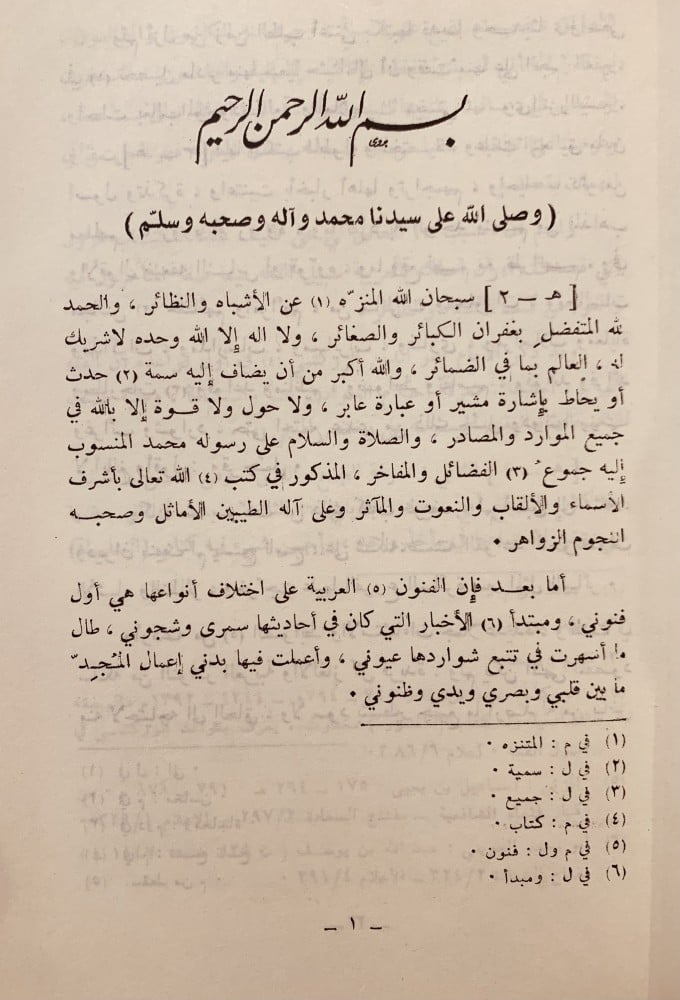 بسم الله الرحمن الرحيم
( وصلى الله على سيدنا محمد وآله وصحبه وسلّم )
[ هـ – ٢ ] سبحان الله المنزّه (١) عن الأشباه والنظائر ، والحمد
لله المتفضل بغفران الكبائر والصغائر ، ولا اله إلا الله وحده لاشريك
له ، العالم بما في الضمائر ، والله أكبر من أن يضاف إليه سمة (٢) حدث
أو يحاط بإشارة مشير أو عبارة عابر ، ولا حول ولا قوة إلا بالله في
جميع الموارد والمصادر ، والصلاة والسلام على رسوله محمد المنسوب
إليه جموعُ (٣) الفضائل والمفاخر ، المذكور في كتب (٤) الله تعالى بأشرف
الأسماء والألقاب والنعوت والمآثر وعلى آله الطيبين الأماثل وصحبه
النجوم الزواهر .
أما بعد فإن الفنون (٥) العربية على اختلاف أنواعها هي أول
فنوني ، ومبتدأ (٦) الأخبار التي كان في أحاديثها سمرى وشجوني ، طال
ما أسهرت في تتبع شواردها عيوني ، وأعملت فيها بدني إعمال المُجِدّ
ما بين قلبي وبصري ويدي وظنوني .
(١) في م : المتنزه .
(٢) في ل : سمية .
(٣) في ل : جميع .
(٤) في م : كتاب .
(٥) في م ول : فنون .
(٦) في ل : ومبدأ .
– ١ –